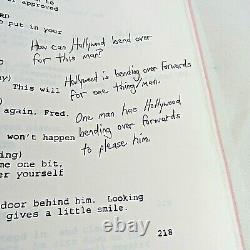 or approved
RD
o put in your
How can Hollywood bend over
for this man?
y)
This will
Hollywood is bending over forwards
for one thing/man.
again, Fred.
One man has Hollywood
won't happen
bending over forwards
to please him.
ing)
me one bit,
er yourself
door behind him. Looking
gives a little smile.
218